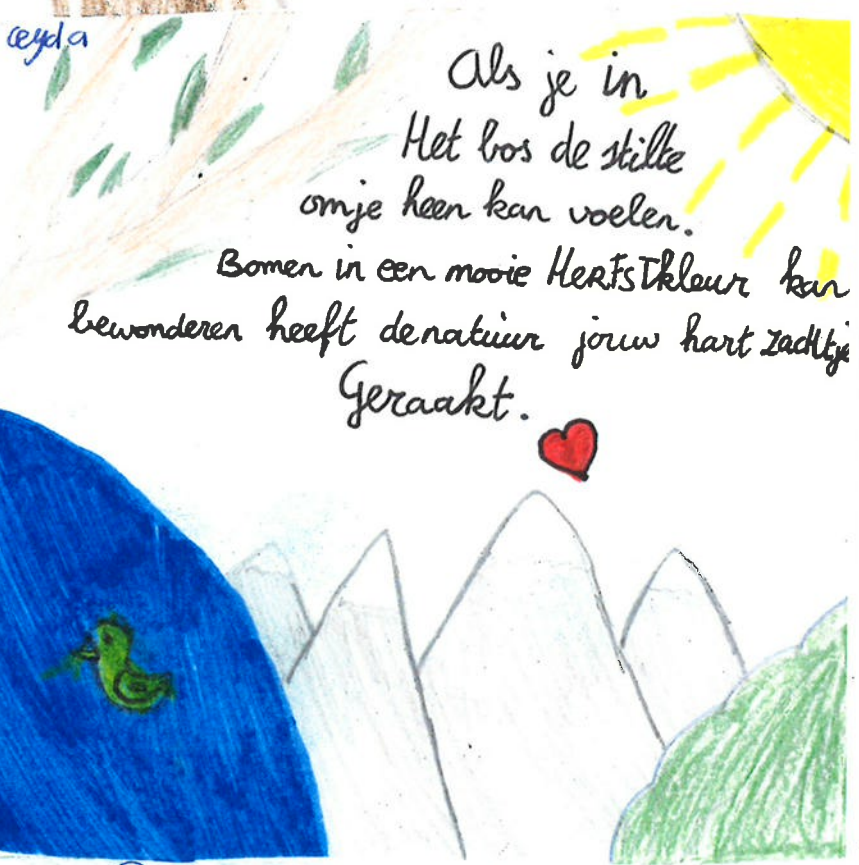 ceyda
Als je in
Het bos de stilte
omje heen kan voelen.
Bomen in een mooie HERFSTkleur kan
bewonderen heeft denatuur jouw hart zachtje
Geraakt.